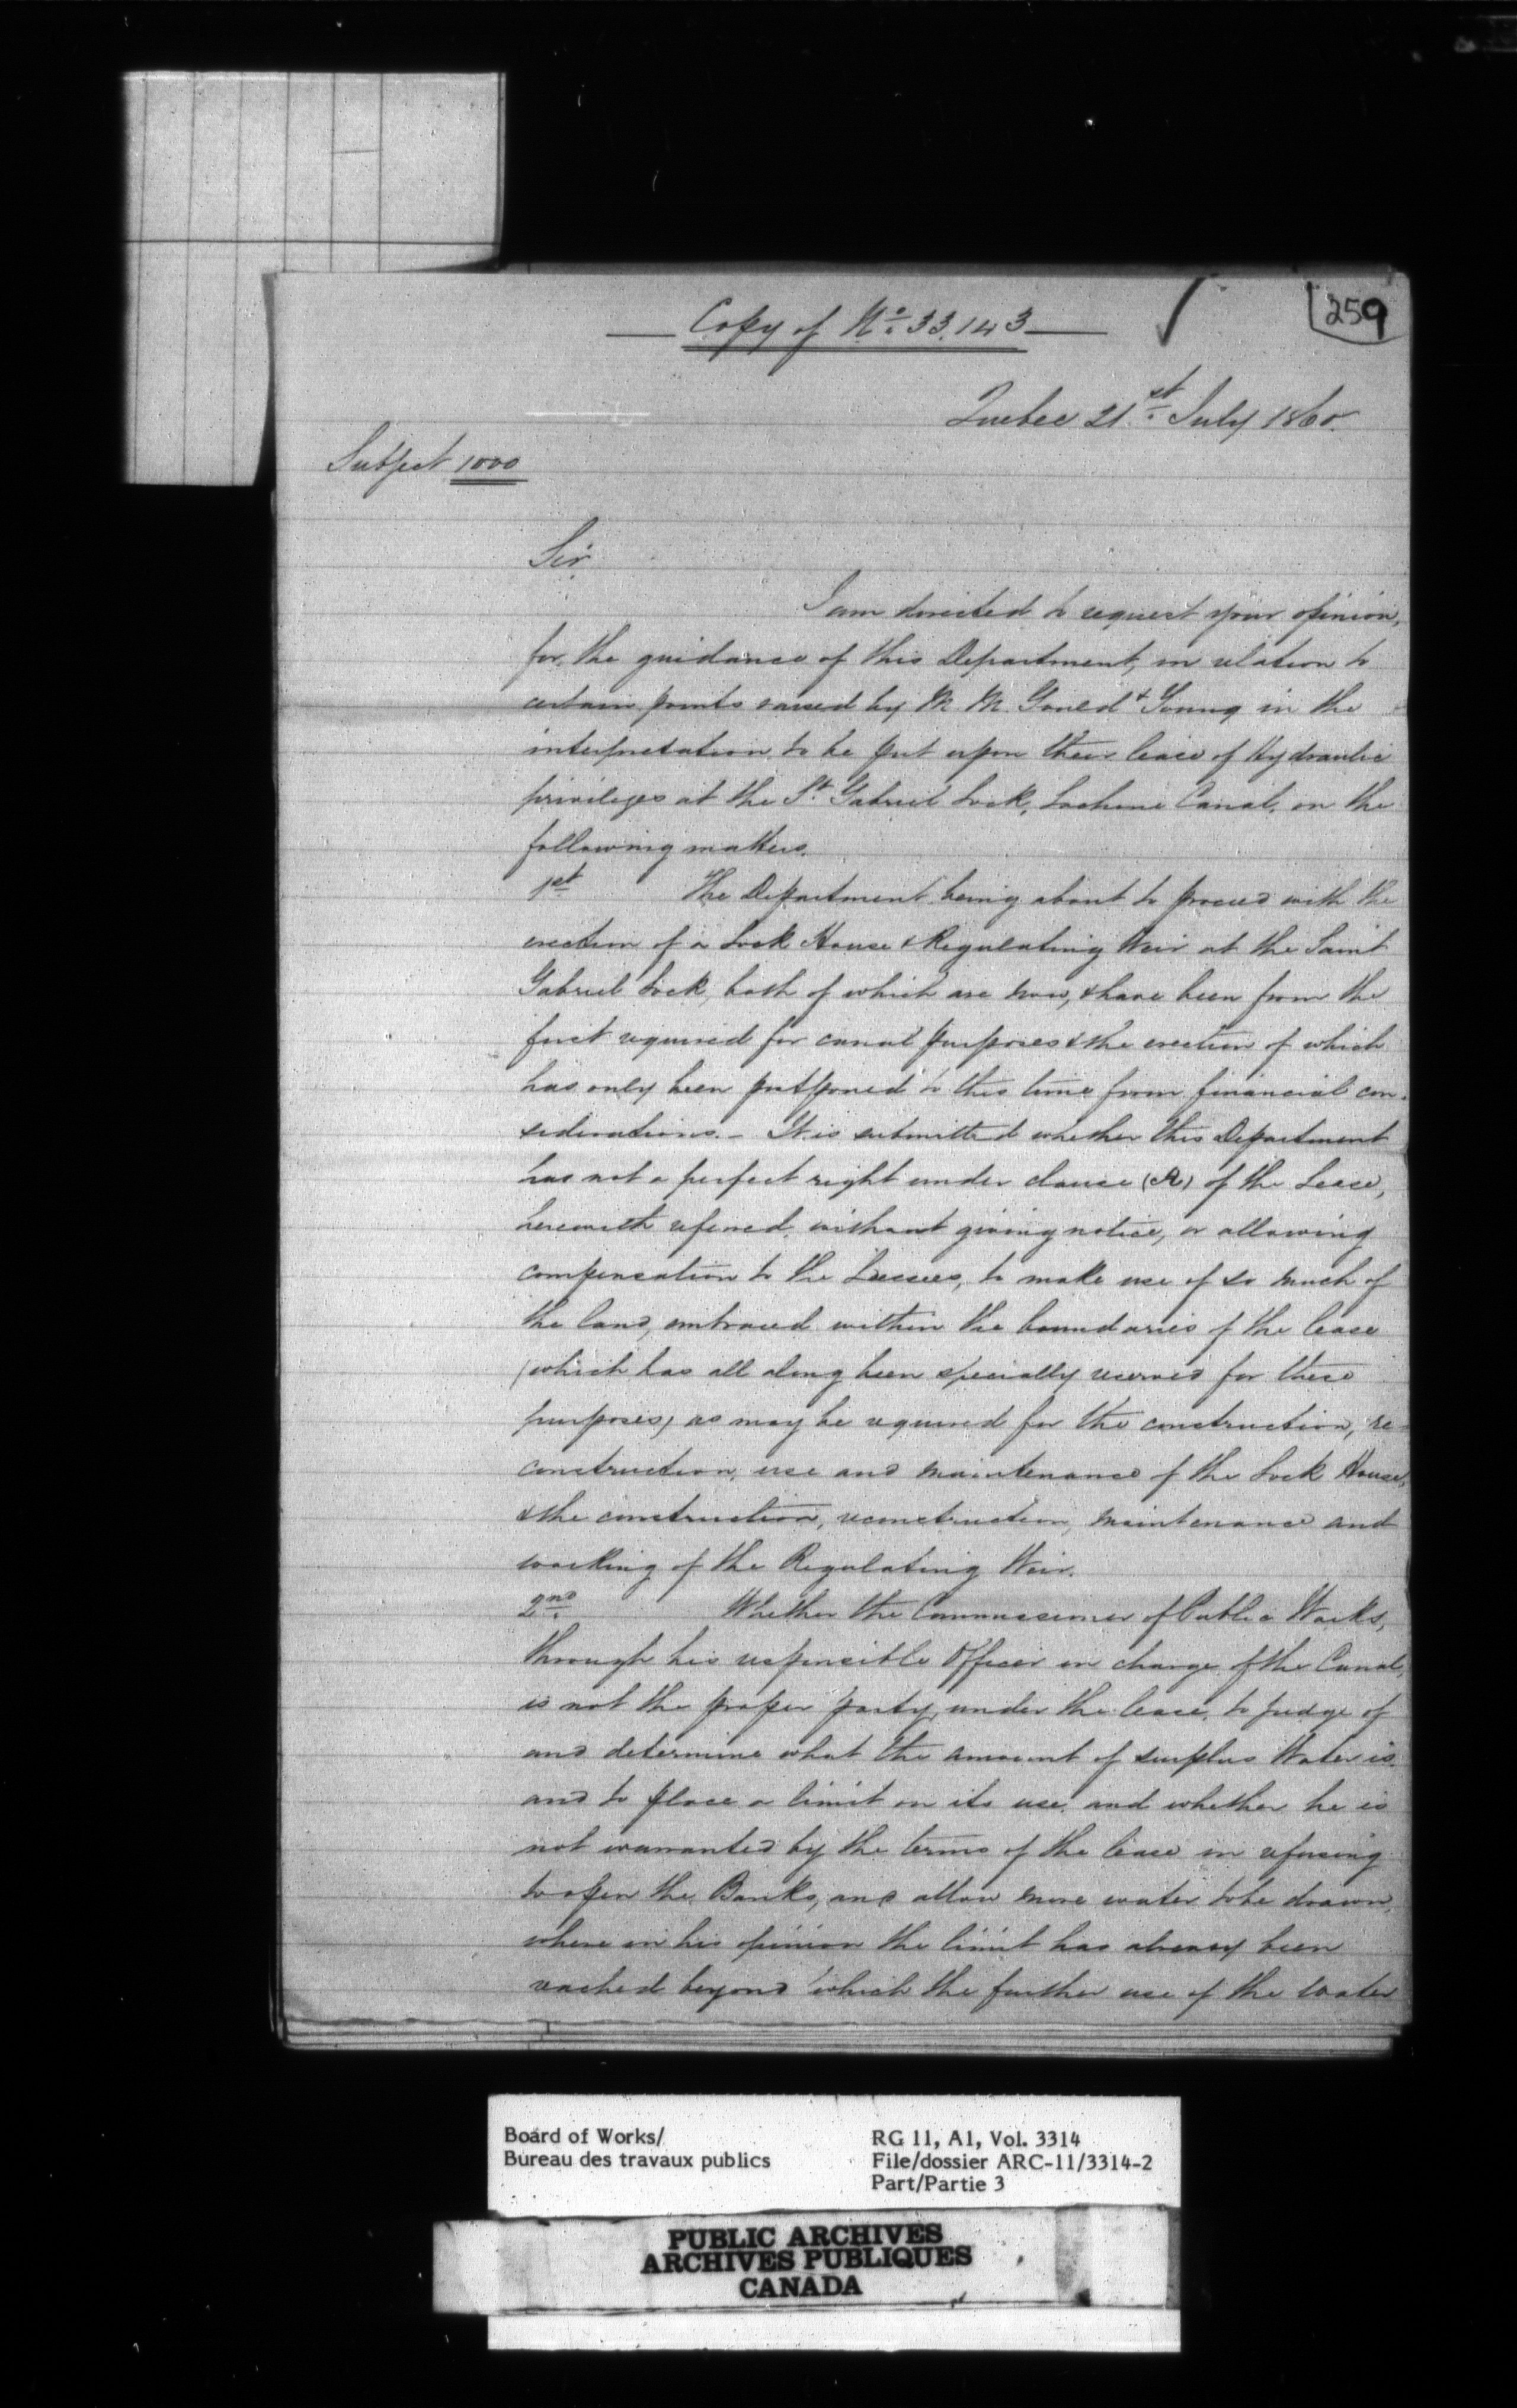 Copy of No. 33.143
259
Quebec 21st July 1860.
Subject 1000
Sir
I am directed to request your opinion,
for the guidance of this Department, in relation to
certain points raised by M M. Gould & Young in the
interpretation to be put upon their lease of Hydraulic
privileges at the St Gabriel Lock, Lachine Canal, on the
following matters.
1st The Department being about to proceed with the
erection of a Lock House & Regulating Weir at the Saint
Gabriel Lock, both of which are now, & have been from the
first required for canal purposes & the erection of which
has only been postponed to this time from financial con-
siderations. - It is submitted whether this Department
has not a perfect right under clause (A) of the Lease,
herewith refered, without giving notice, or allowing
compensation to the Lessees, to make use of so much of
the land, embraced within the boundaries of the lease
(which has all along been specially reserved for these
purposes) as may be required for the construction, re-
construction, use and maintenance of the Lock House,
& the construction, reconstruction, maintenance and
working of the Regulating Weir.
2nd. Whether the Commissioner of Public Works,
through his responsible Officer in charge of the Canal,
is not the proper party, under the lease, to judge of
and determine what the amount of surplus Water is
and to place a limit on its use, and whether he is
not warranted by the terms of the lease in refusing
to open the Banks, and allow more water to be drawn,
where in his opinion the limit has already been
reached beyond which the further use of the water
Board of Works/
Bureau des travaux publics
RG 11, A1, Vol. 3314
File/dossier ARC-11/3314-2
Part/Partie 3
PUBLIC ARCHIVES
ARCHIVES PUBLIQUES
CANADA